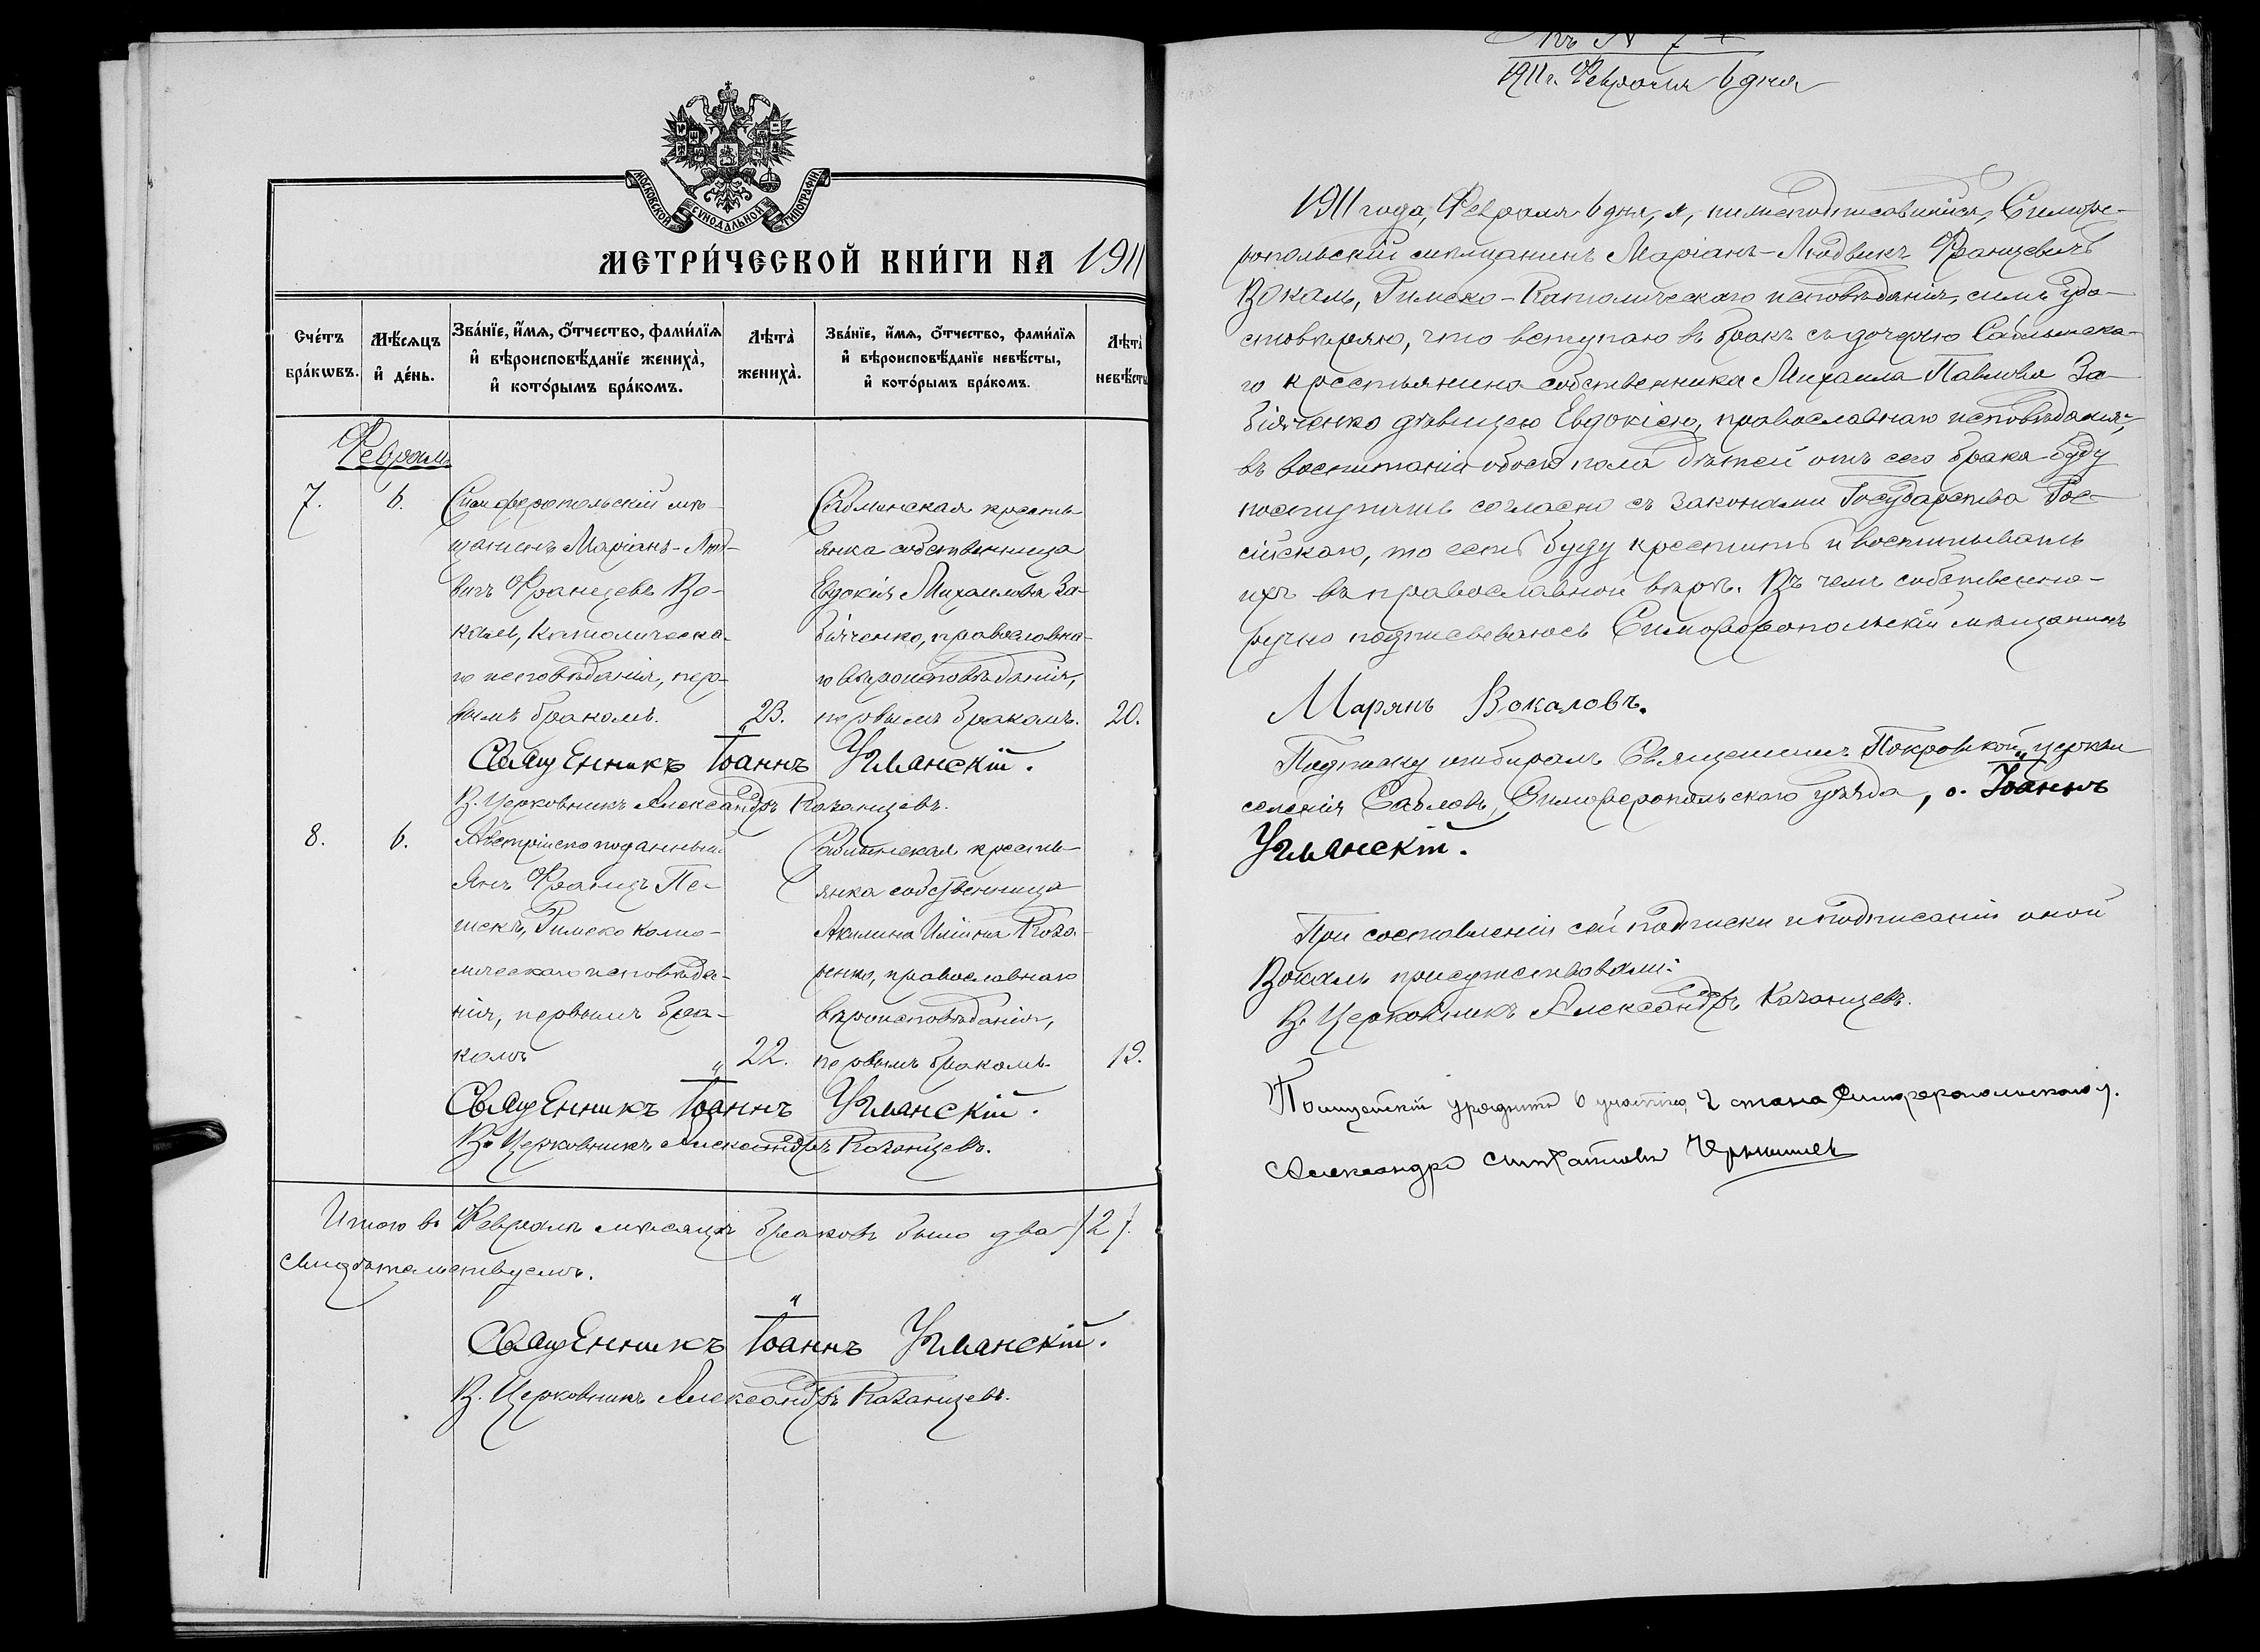 МОСКОВСКОЙ СѴНОДАЛЬНОЙ ТИПОГРАФІИ
МЕТРИ́ЧЕСКОЙ КНИ́ГИ НА 1911
Сче́тъ бра́кѡвъ.
Мѣ́сяцъ и҆ де́нь.
Зва́нїе, и҆́мѧ, ѻ҆́тчество, фами́лїѧ
и҆ вѣроисповѣ́данїе жениха̀,
и҆ кото́рымъ бра́комъ.
Лѣта̀ жениха̀.
Зва́нїе, и҆́мѧ, ѻ҆́тчество, фами́лїѧ
и҆ вѣроисповѣ́данїе невѣ́сты,
и҆ кото́рымъ бра́комъ.
Лѣта̀ невѣ́сты
Февраль
7. 6.
Симферопольскій мѣ-
щанинъ Маріанъ-Люд-
вигъ Францевъ Во-
каль, Католическа-
го исповѣданія, пер-
вымъ бракомъ.
23.
Саблынская кресть-
янка собственница
Евдокія Михаилова За-
біяченко, православна-
го вѣроисповѣданія,
первымъ бракомъ.
20.
Священникъ Іоаннъ Уманскій.
В. Церковникъ Александръ Казанцевъ.
8. 6.
Австрійско поданный
Янъ Францъ Пе-
шекъ, Римско като-
лическаго исповѣда-
нія, первымъ бра-
комъ
22.
Саблынская кресть-
янка собственница
Акилина Иліина
православнаго
вѣроисповѣданія,
первымъ бракомъ.
19.
Священникъ Іоаннъ Уманскій.
В. Церковникъ Александръ Казанцевъ.
Итого въ Февралѣ мѣсяцѣ браковъ было два /2/.
Свидѣтельствуемъ.
Священникъ Іоаннъ Уманскій.
В. Церковникъ Александръ Казанцевъ.
Къ № 7
1911 г. Февраля 6 дня
1911 года, Февраля 6 дня, я, нижеподписавшійся, Симфе-
ропольскій мѣщанинъ Маріанъ-Людвикъ Францевичъ
Вокаль, Римско-Католическаго исповѣданія, симъ удо-
стовѣряю, что вступаю въ бракъ съ дочерью Саблынска-
го крестьянина собственника Михаила Павлова За-
біяченко дѣвицею Евдокіею, православнаго исповѣданія,
въ воспитаніи обоего пола дѣтей отъ сего брака буду
поступать согласно съ законами Государства Рос-
сійскаго, то есть буду крестить и воспитывать
ихъ въ православной вѣрѣ. Въ чемъ собственно-
ручно подписываюсь Симферопольскій мѣщанинъ
Марянъ Вокаловъ.
Подписку отбиралъ Священникъ Покровской церкви
селенія Сабловъ, Симферопольскаго уѣзда, о. Іоаннъ
Уманскій.
При составленіи сей подписки и подписаніи оной
Вокаль присутствовали:
В. Церковникъ Александръ Казанцевъ.
Полицейскій урядникъ 6 участка 2 стана Симферопольскаго у.
Александръ